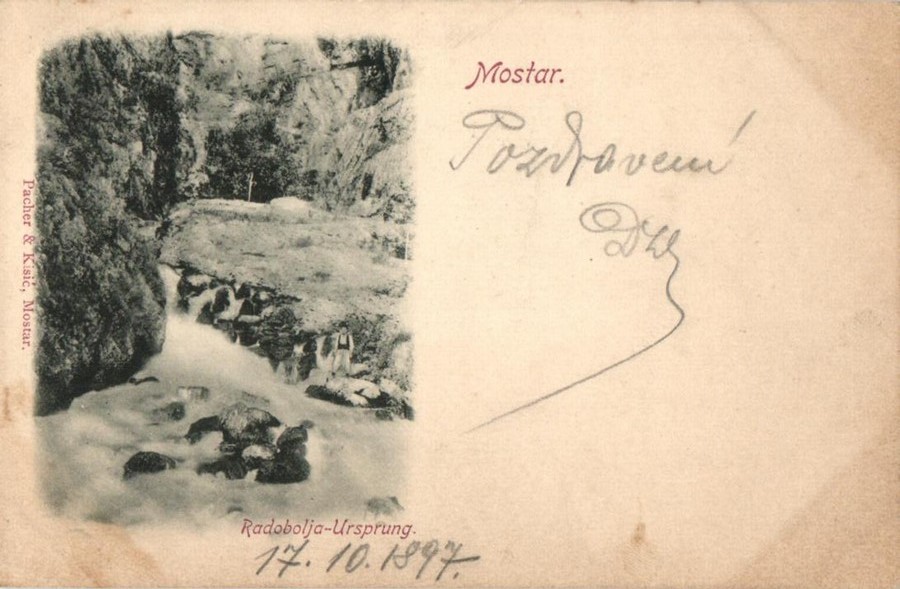 Mostar.
Pozdravení
Pacher & Kisić, Mostar.
Radobolja-Ursprung.
17. 10. 1897.